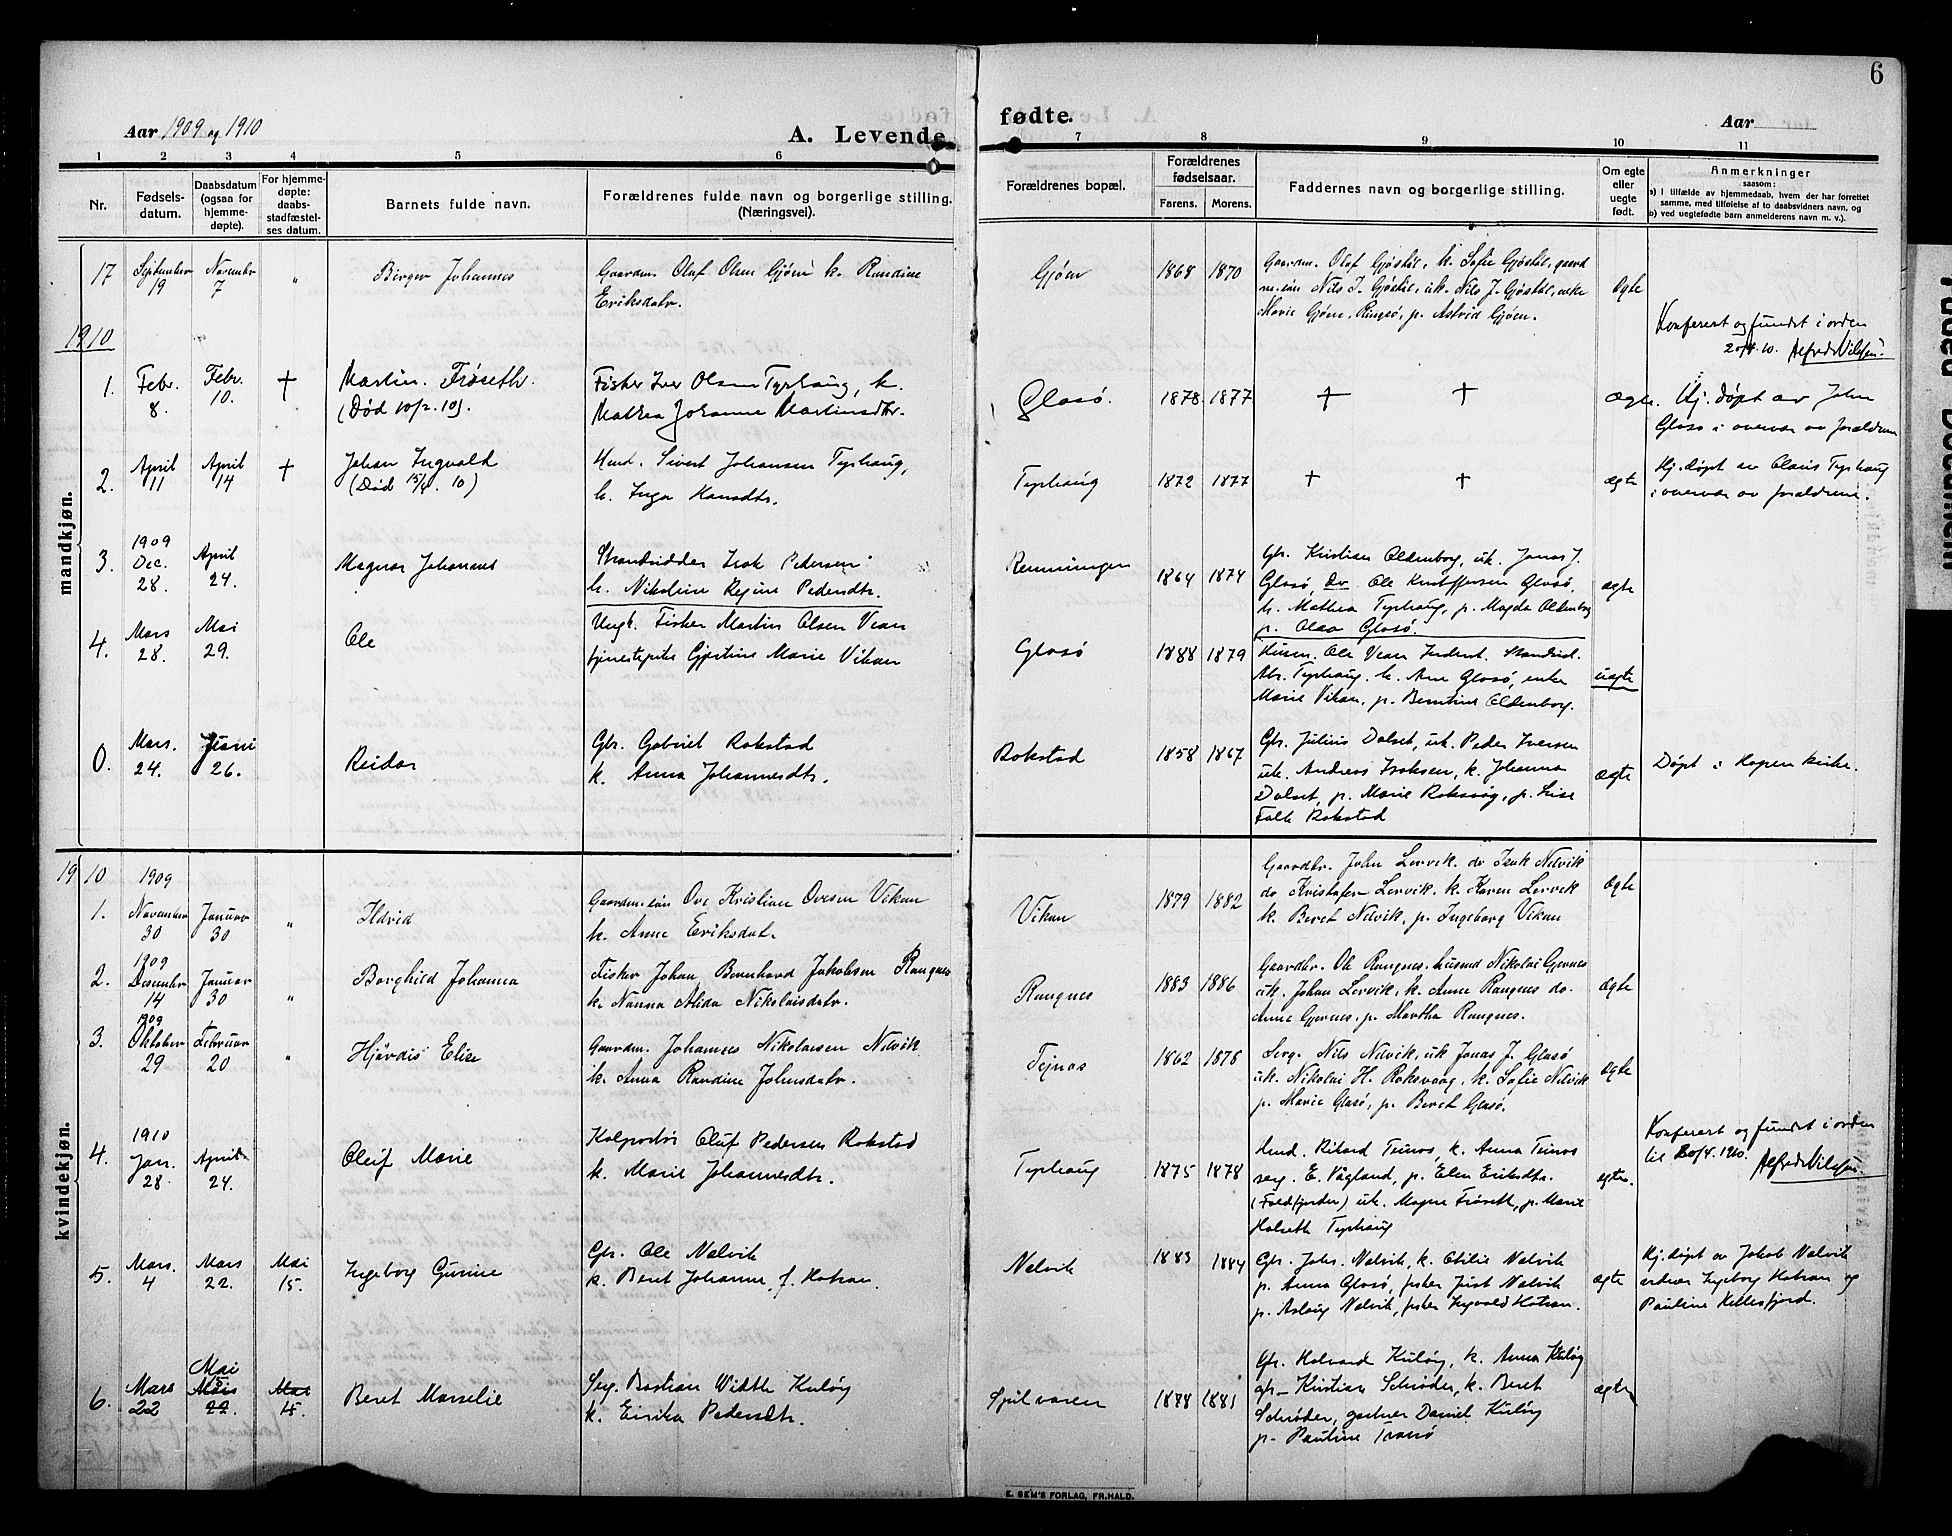 6
Aar 1909 og 1910
A. Levende
fødte.
Aar
1 2 3 4 5 6 7 8 9 10 11
Nr.
Fødsels-
datum.
Daabsdatum
(ogsaa for
hjemme-
døpte).
For hjemme-
døpte:
daabs-
stadfæstel-
ses datum.
Barnets fulde navn.
Forældrenes fulde navn og borgerlige stilling.
(Næringsvei).
Forældrenes bopæl.
Forældrenes
fødselsaar.
Farens. Morens.
Faddernes navn og borgerlige stilling.
Om egte
eller
uegte
født.
Anmerkninger
saasom:
a) i tilfælde av hjemmedaab, hvem der har forrettet
samme, med tilføielse av to daabsvidners navn, og
b) ved uegtefødte barn anmelderens navn m. v.).
mandkjøn.
17 September 19 November 7 " Birger Johannes
Gaardm. Olaf Olsen Gjøen k. Randine
Eriksdatr.
Gjøen 1868 1870
Gaardm. Olaf Gjøstøl, k. Sofie Gjøstøl, gaard
m.søn Nils J. Gjøstøl, uk. Nils J. Gjøstøl, enke
Marie Gjøen, Ringsø, p. Astrid Gjøen.
Ægte
Konferert og fundet i orden
20/4.10. Alfred Nilsen.
1910
1. Febr. 8. Febr. 10. † Martin. Frøseth.
(Død 10/2.10).
Fisker Iver Olsen Tyrhaug, k.
Mathea Johanne Martinsdtr.
Glasø. 1878. 1877 † † ægte.
Hj. døpt av John
Glasø i overvær av forældrene
2. April 11 April 14 † Johan Ingvald
(Død 15/4. 10)
Husm. Sivert Johansen Tyrhaug,
k. Inga Hansdtr.
Tyrhaug 1872 1877 † † ægte
Hj. døpt av Claus Tyrhaug
i overvær av forældrene.
3. 1909 Dec. 28. April 24. Magnar Johannes
Strandsidder Isak Pedersen
k. Nikoline Regine Pedersdtr.
Renningen 1864 1874
Gbr. Kristian Oldenborg, uk. Jonas J.
Glasø, do Ole Kristoffersen Glasø,
k. Mathea Tyrhaug, p. Magda Oldenborg
p. Olava Glasø.
ægte
4. Mars 28. Mai 29. Ole
Ungk. Fisker Martin Olsen Vean
tjenestepike Gjertine Marie Vikan
Glasø 1888 1879
Husm. Ole Vean Inderst. Strandsid.
Abr. Tyrhaug. k. Ane Glasø, enke
Marie Vikan, p. Berntine Oldenborg.
uægte
0. Mars. 24. Juni 26. Reidar
Gbr. Gabriel Rokstad
k. Anna Johannesdtr.
Rokstad 1858 1867
Gbr. Julius Dalset, uk. Peder Iversen
uk. Andreas Isaksen, k. Johanna
Dalset, p. Marie Roksvåg, p. Lise
Falk Rokstad
Ægte
Døpt i Hopen kirke.
kvindekjøn.
1910
1. 1909 November 30 Januar 30 " Ildrid
Gaardm.søn Ove Kristian Ovesen Vikan
k. Anne Eriksdatr.
Vikan 1879 1882
Gaardbr. John Lervik. do Isak Nelvik
do Kristofer Lervik. k. Karen Lervik
k. Beret Nelvik, p. Ingeborg Vikan
Ægte
2. 1909 Desember 14 Januar 30 " Borghild Johanna
Fisker Johan Bernhard Jakobsen Rangnes
k. Nanna Alida Nikolaisdatr.
Rangnes 1883 1886
Gaardbr. Ole Rangnes. husmd Nikolai Gjernes
uk. Johan Lervik, k. Anne Rangnes do.
Anne Gjernes, p. Martha Rangnes.
Ægte
3. 1909 Oktober 29 Februar 20 " Hjørdis Elise
Gaardm. Johannes Nikolaisen Nelvik
k. Anna Randine Johnsdatr.
Tejnæs 1862 1878
Serg. Nils Nelvik, uk Jonas J. Glasø
uk. Nikolai H. Roksvaag, k. Sofie Nelvik
p. Marie Glasø, p. Beret Glasø.
Ægte
4. 1910 Jan. 28. April 24. Oleif Marie
Kolportør Oluf Pedersen Rokstad
k. Marie Johannesdtr.
Tyrhaug 1875 1878
Husd. Rikard Teinæs, k. Anna Teinæs
serg. E. Vågland, p. Elen Eriksdtr.
(Foldfjorden) uk. Magne Frøseth, p. Marie
Holseth Tyrhaug
ægte.
Konferert og fundet i orden
til 20/4.1910. Alfred Nilsen.
5. Mars. 4 Mars 22. Mai 15. Ingeborg Gurine
Gbr. Ole Nelvik
k. Beret Johanne, f. Hotran
Nelvik 1883 1884
Gbr. Johs. Nelvik, k. Otilie Nelvik
p. Anna Glasø, fisker Just Nelvik
p. Aslaug Nelvik, fisker Ingvald Hotran.
ægte
Hj. døpt av Jakob Nelvik
vidner Ingeborg Hotran og
Pauline Kellesfjord.
6. Mars 22 Mai 15 Mars 22. Mai 15. Beret Marselie
Serg. Bastian Width Kuløy
k. Eirika Pedersdtr.
Spilvaren 1878 1881
Gbr. Halvard Kuløy, k. Anna Kuløy
gbr. Kristian Schrøder, k. Beret
Schrøder, gartner Daniel Kuløy
p. Pauline Transø
ægte
E. SEM'S FORLAG, FR.HALD.